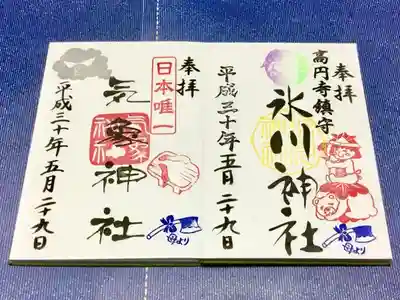 奉拝
高円寺鎮守
氷川神社
平成三十年五月二十九日
より
奉拝
日本唯一
気象神社
平成三十年五月二十九日
より